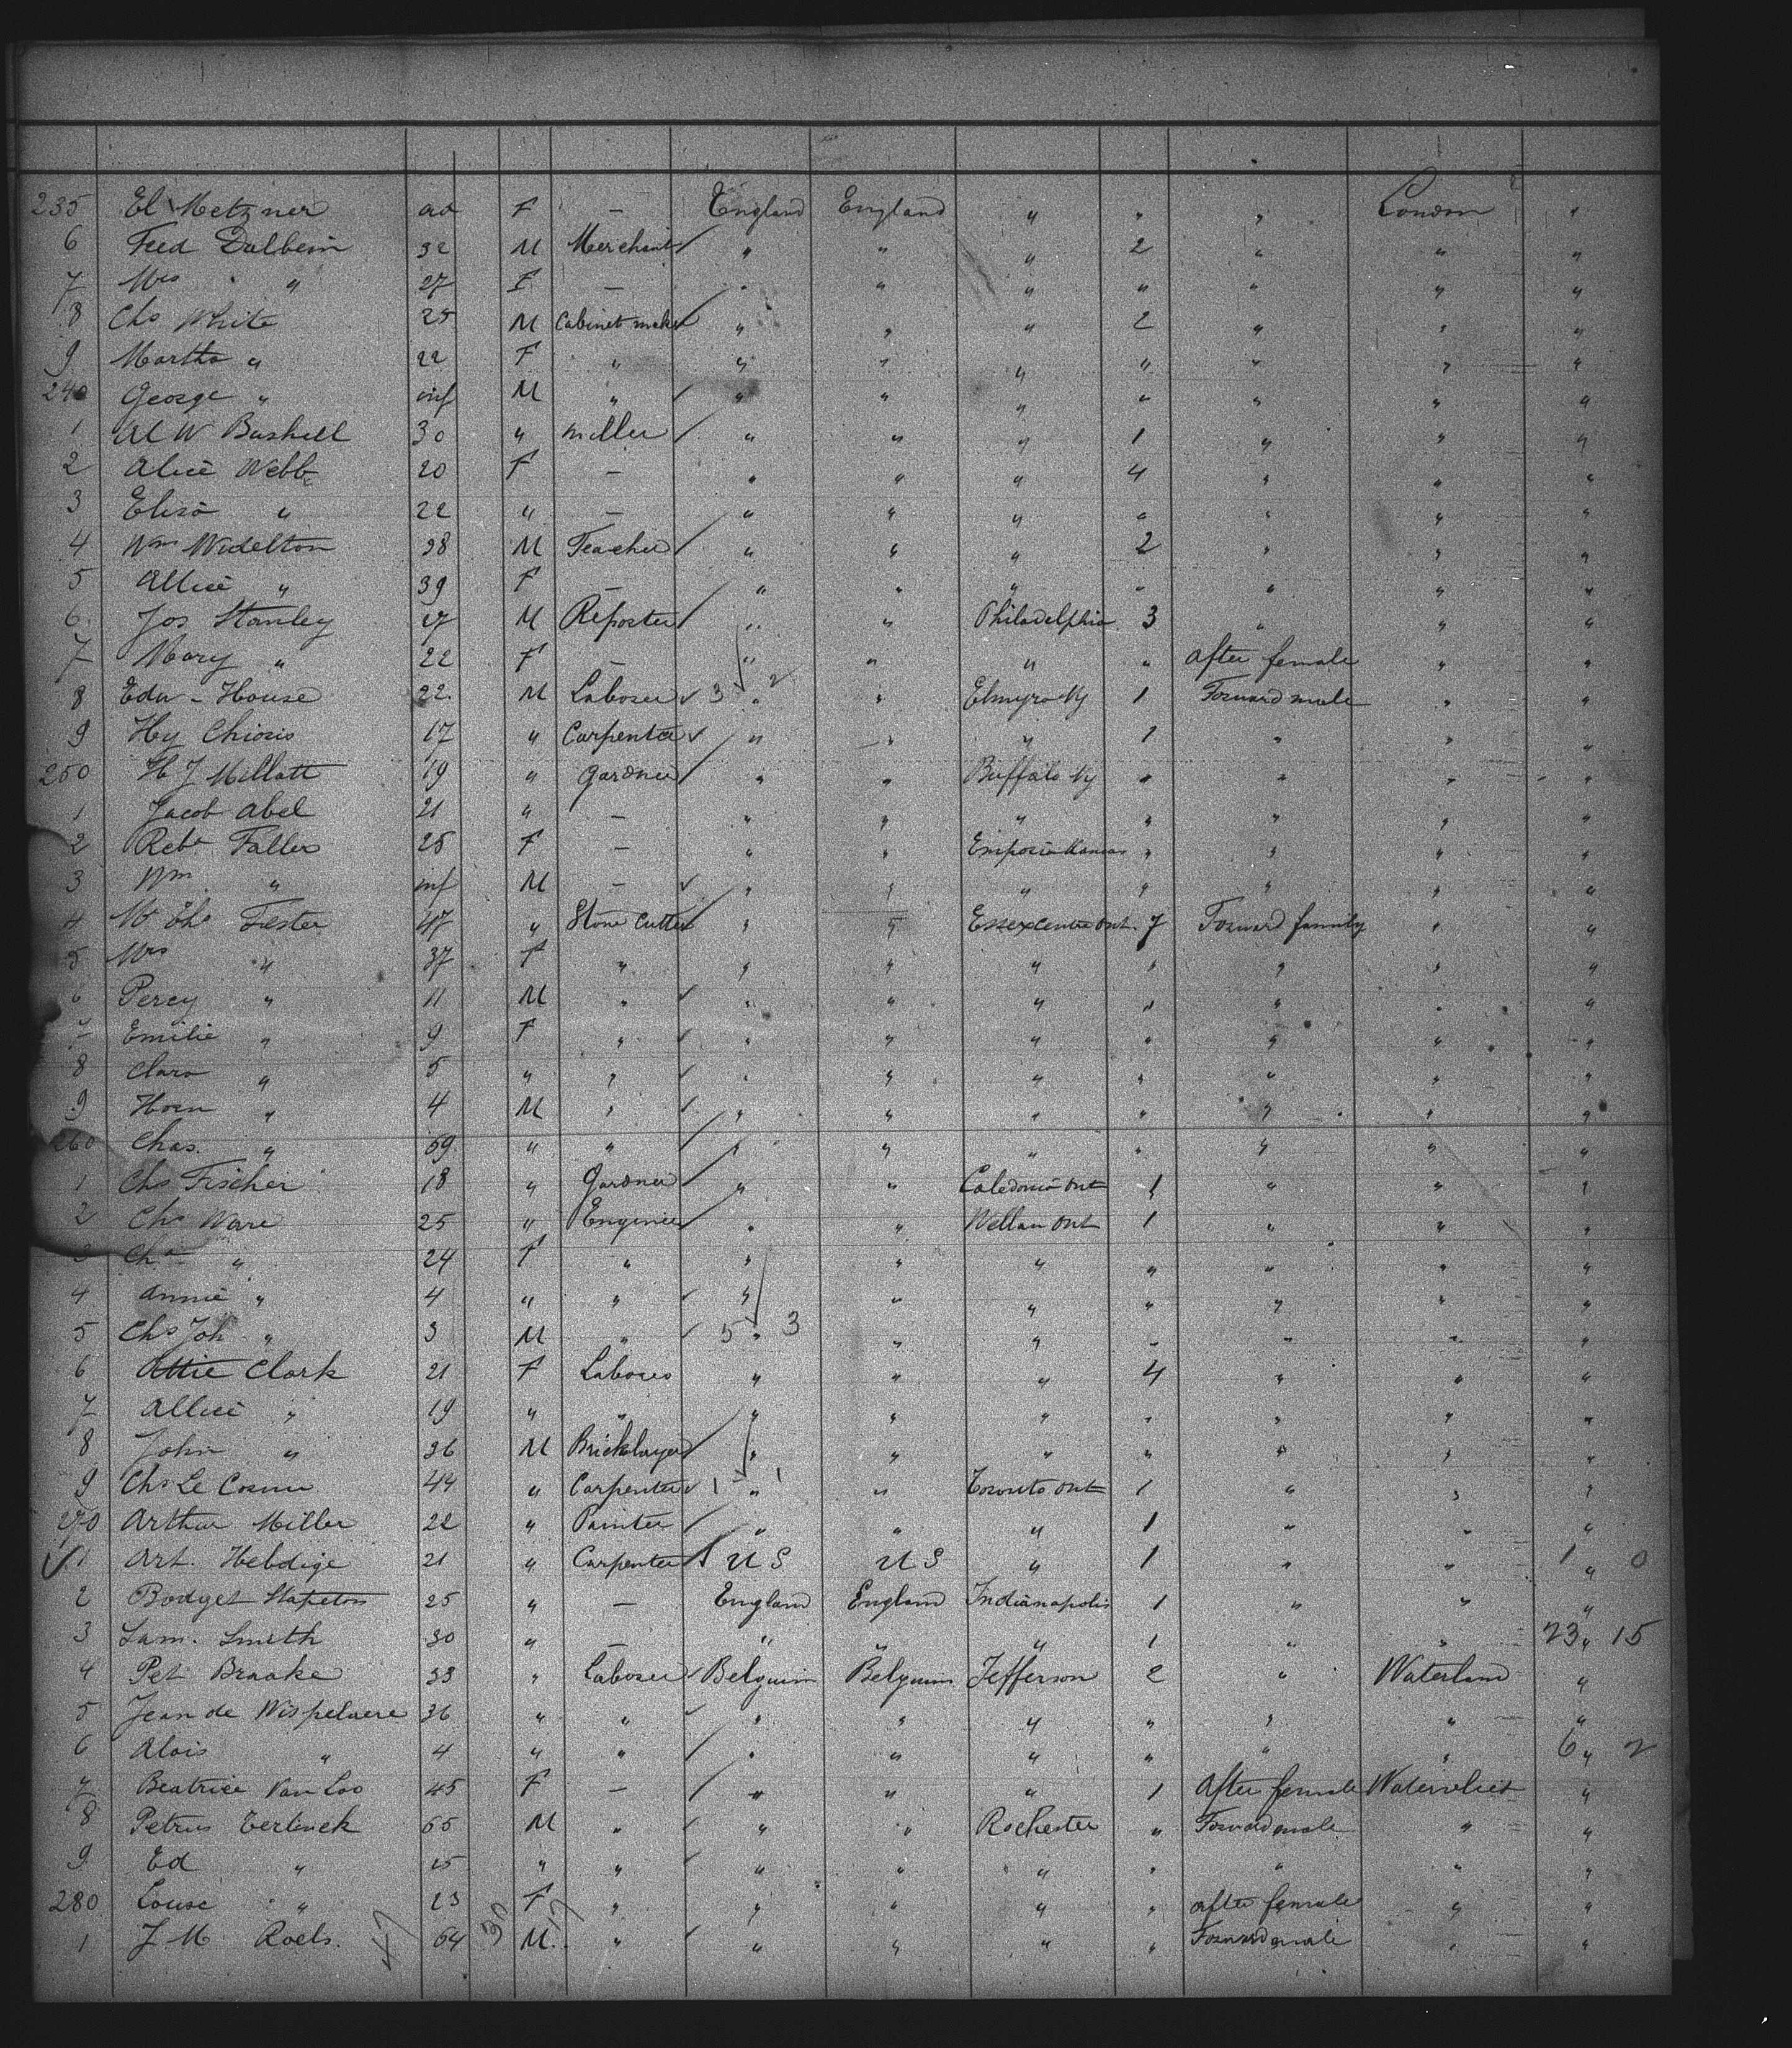 235 El Metzner ad F — England England " " " London "
6 Fred Dalbein 32 M Merchant " " " 2 " " "
7 Mrs " 27 F — " " " " " " "
8 Chs White 25 M Cabinet maker " " " 2 " " "
9 Martha " 22 F " " " " " " " "
240 George " inf M " " " " " " " "
1 Al W Bushell 30 " Miller " " " 1 " " "
2 Alice Webb 20 F — " " " 4 " " "
3 Elisa " 22 " — " " " " " " "
4 Wm Widelton 38 M Teacher " " " 2 " " "
5 Allice " 39 F — " " " " " " "
6 Jos Stanley 27 M Reporter " " Philadelphia 3 " " "
7 Mary " 22 F — " " " " After female " "
8 Edw - House 22 M Laborer 3 " 2 " Elmyra Ny 1 Forward male " "
9 Hy Chiosis 17 " Carpenter " " " 1 " " "
250 H J Millatt 19 " Gardner " " Buffalo Ny " " " "
1 Jacob Abel 21 " — " " " " " " "
2 Rebt Faller 25 F — " " Emporia Kansas " " " "
3 Wm " inf M — " " " " " " "
4 Fester 47 " Stone Cutter " " Essexcentre Ont. 7 Forward family " "
5 Mrs " 37 F " " " " " " " "
6 Percy " 11 M " " " " " " " "
7 Emilie " 9 F " " " " " " " "
8 Clara " 5 " " " " " " " " "
9 Horn " 4 M " " " " " " " "
260 Chas. " 59 " " " " " " " " "
1 Chs Fischer 18 " Gardner " " Caledonia Ont 1 " " "
2 Chs Ware 25 " Engenier " " Wellan Ont 1 " " "
3 " 24 F " " " " " " " "
4 Annie " 4 " " " " " " " " "
5 Chs Joh " 3 M " 5 " 3 " " " " " "
6 Attie Clark 21 F Labores " " " 4 " " "
7 Allice " 19 " " " " " " " " "
8 John " 36 M Bricklayer " " " " " " "
9 Chs Le Cosnu 44 " Carpenter 1 " 1 " Toronto Ont 1 " " "
270 Arthur Miller 22 " Painter " " " 1 " " "
1 Art. Hebdige 21 " Carpenter U S U S " 1 " " 1 " 0
2 Bodget Stapeton 25 " — England England Indianapolis 1 " " "
3 Sam. Smith 30 " — " " " 1 " " 23 " 15
4 Pet Braake 33 " Laborer Belguim Belguim Jefferson 2 " Waterland "
5 Jean de Wispelaere 36 " " " " " " " " "
6 Alois " 4 " " " " " " " " 6 " 2
7 Beatrice Van Loo 45 F — " " " 1 After female Watervliet "
8 Petrus Terlinck 65 M " " " Rochester " Forward male " "
9 Ed " 15 " " " " " " " " "
280 Louse " 23 F " " " " " After female " "
1 J M Roels. 64 M. " " " " " Forward male " "
47 30 17